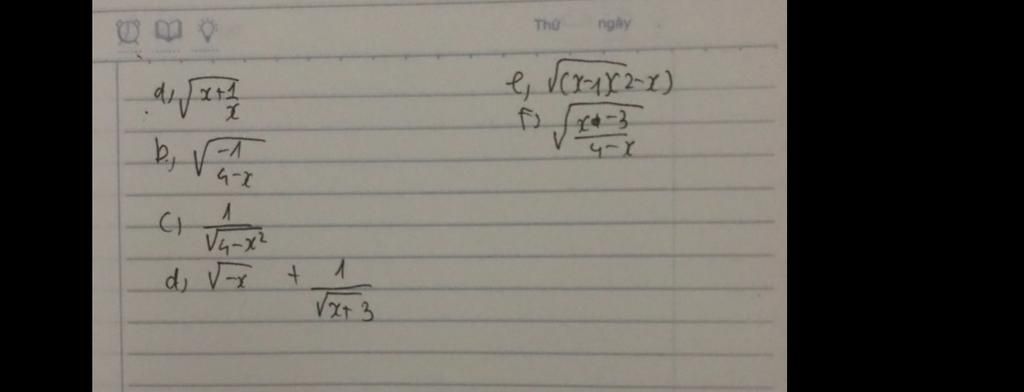 Thứ ngày
a, √(x+1/x)
b, √(-1/(4-x))
c) 1/√(4-x²)
d, √-x + 1/√(x+3)
e, √(x-1)(2-x)
f) √((x-3)/(4-x))